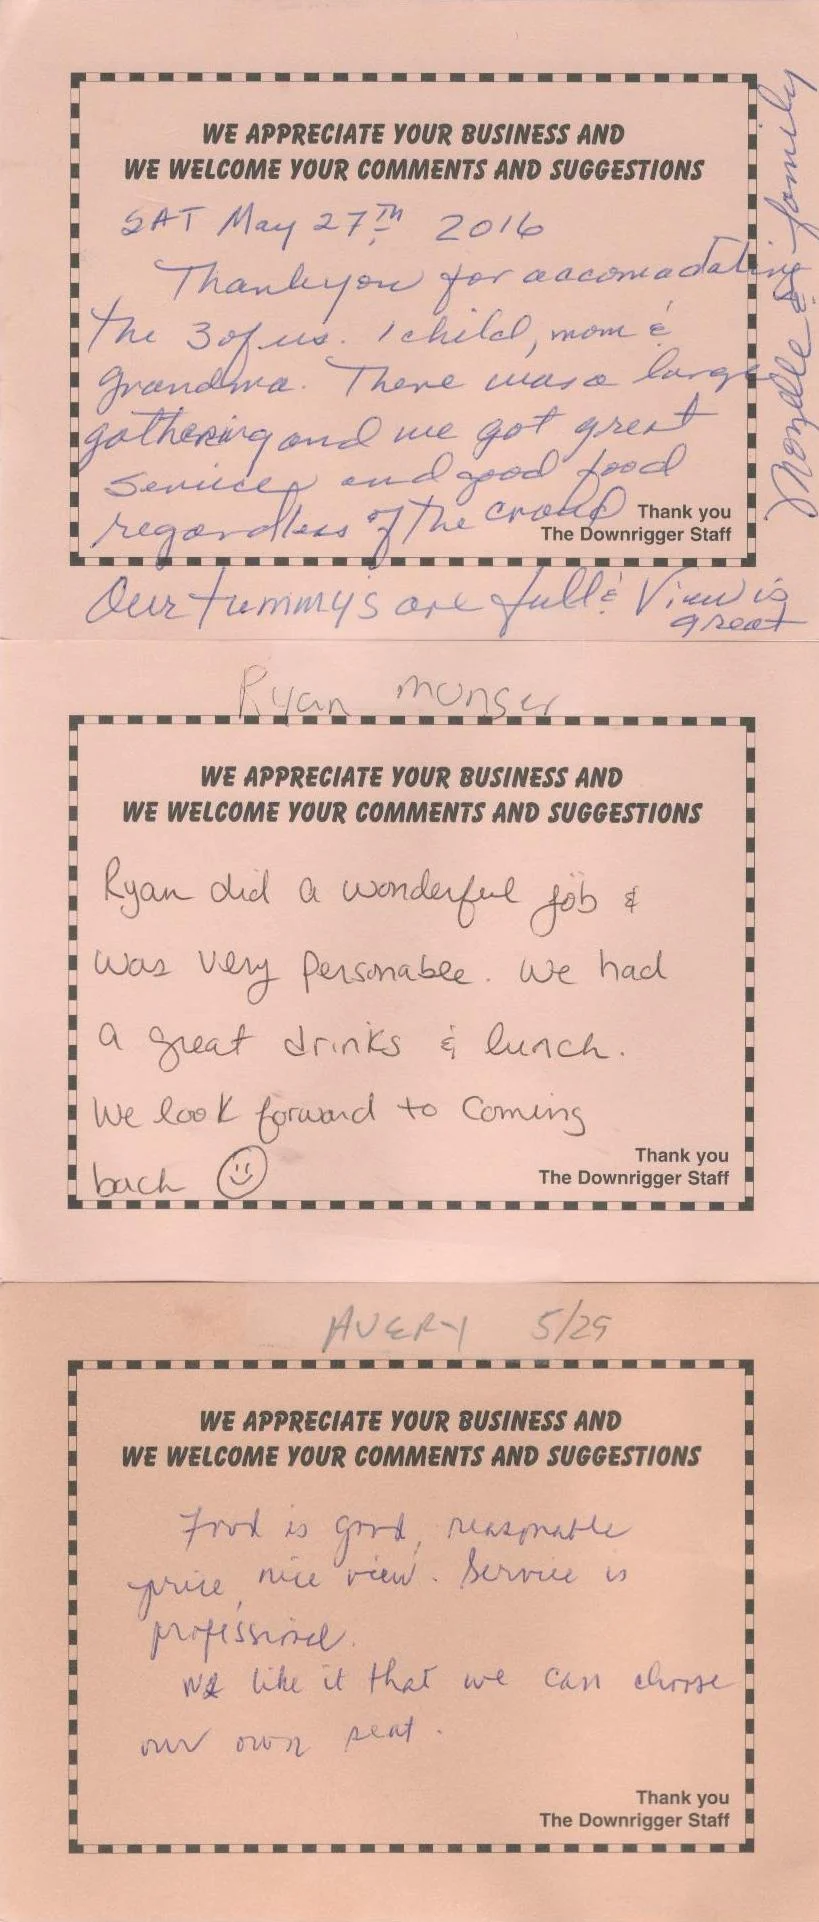 WE APPRECIATE YOUR BUSINESS AND
WE WELCOME YOUR COMMENTS AND SUGGESTIONS
SAT May 27TH 2016
Thankyou for accomadating
the 3 of us. 1 child, mom &
grandma. There was a large
gathering and we got great
Service and good food
regardless of the crowd
Thank you
The Downrigger Staff
Our tummy's are full & View is
great
& family
Ryan Munser
WE APPRECIATE YOUR BUSINESS AND
WE WELCOME YOUR COMMENTS AND SUGGESTIONS
Ryan did a wonderful job &
was very personable. We had
a great drinks & lunch.
We look forward to coming
back
Thank you
The Downrigger Staff
AVERY 5/29
WE APPRECIATE YOUR BUSINESS AND
WE WELCOME YOUR COMMENTS AND SUGGESTIONS
Food is good, reasonable
price, nice view. Service is
professional.
We like it that we can choose
our own seat.
Thank you
The Downrigger Staff